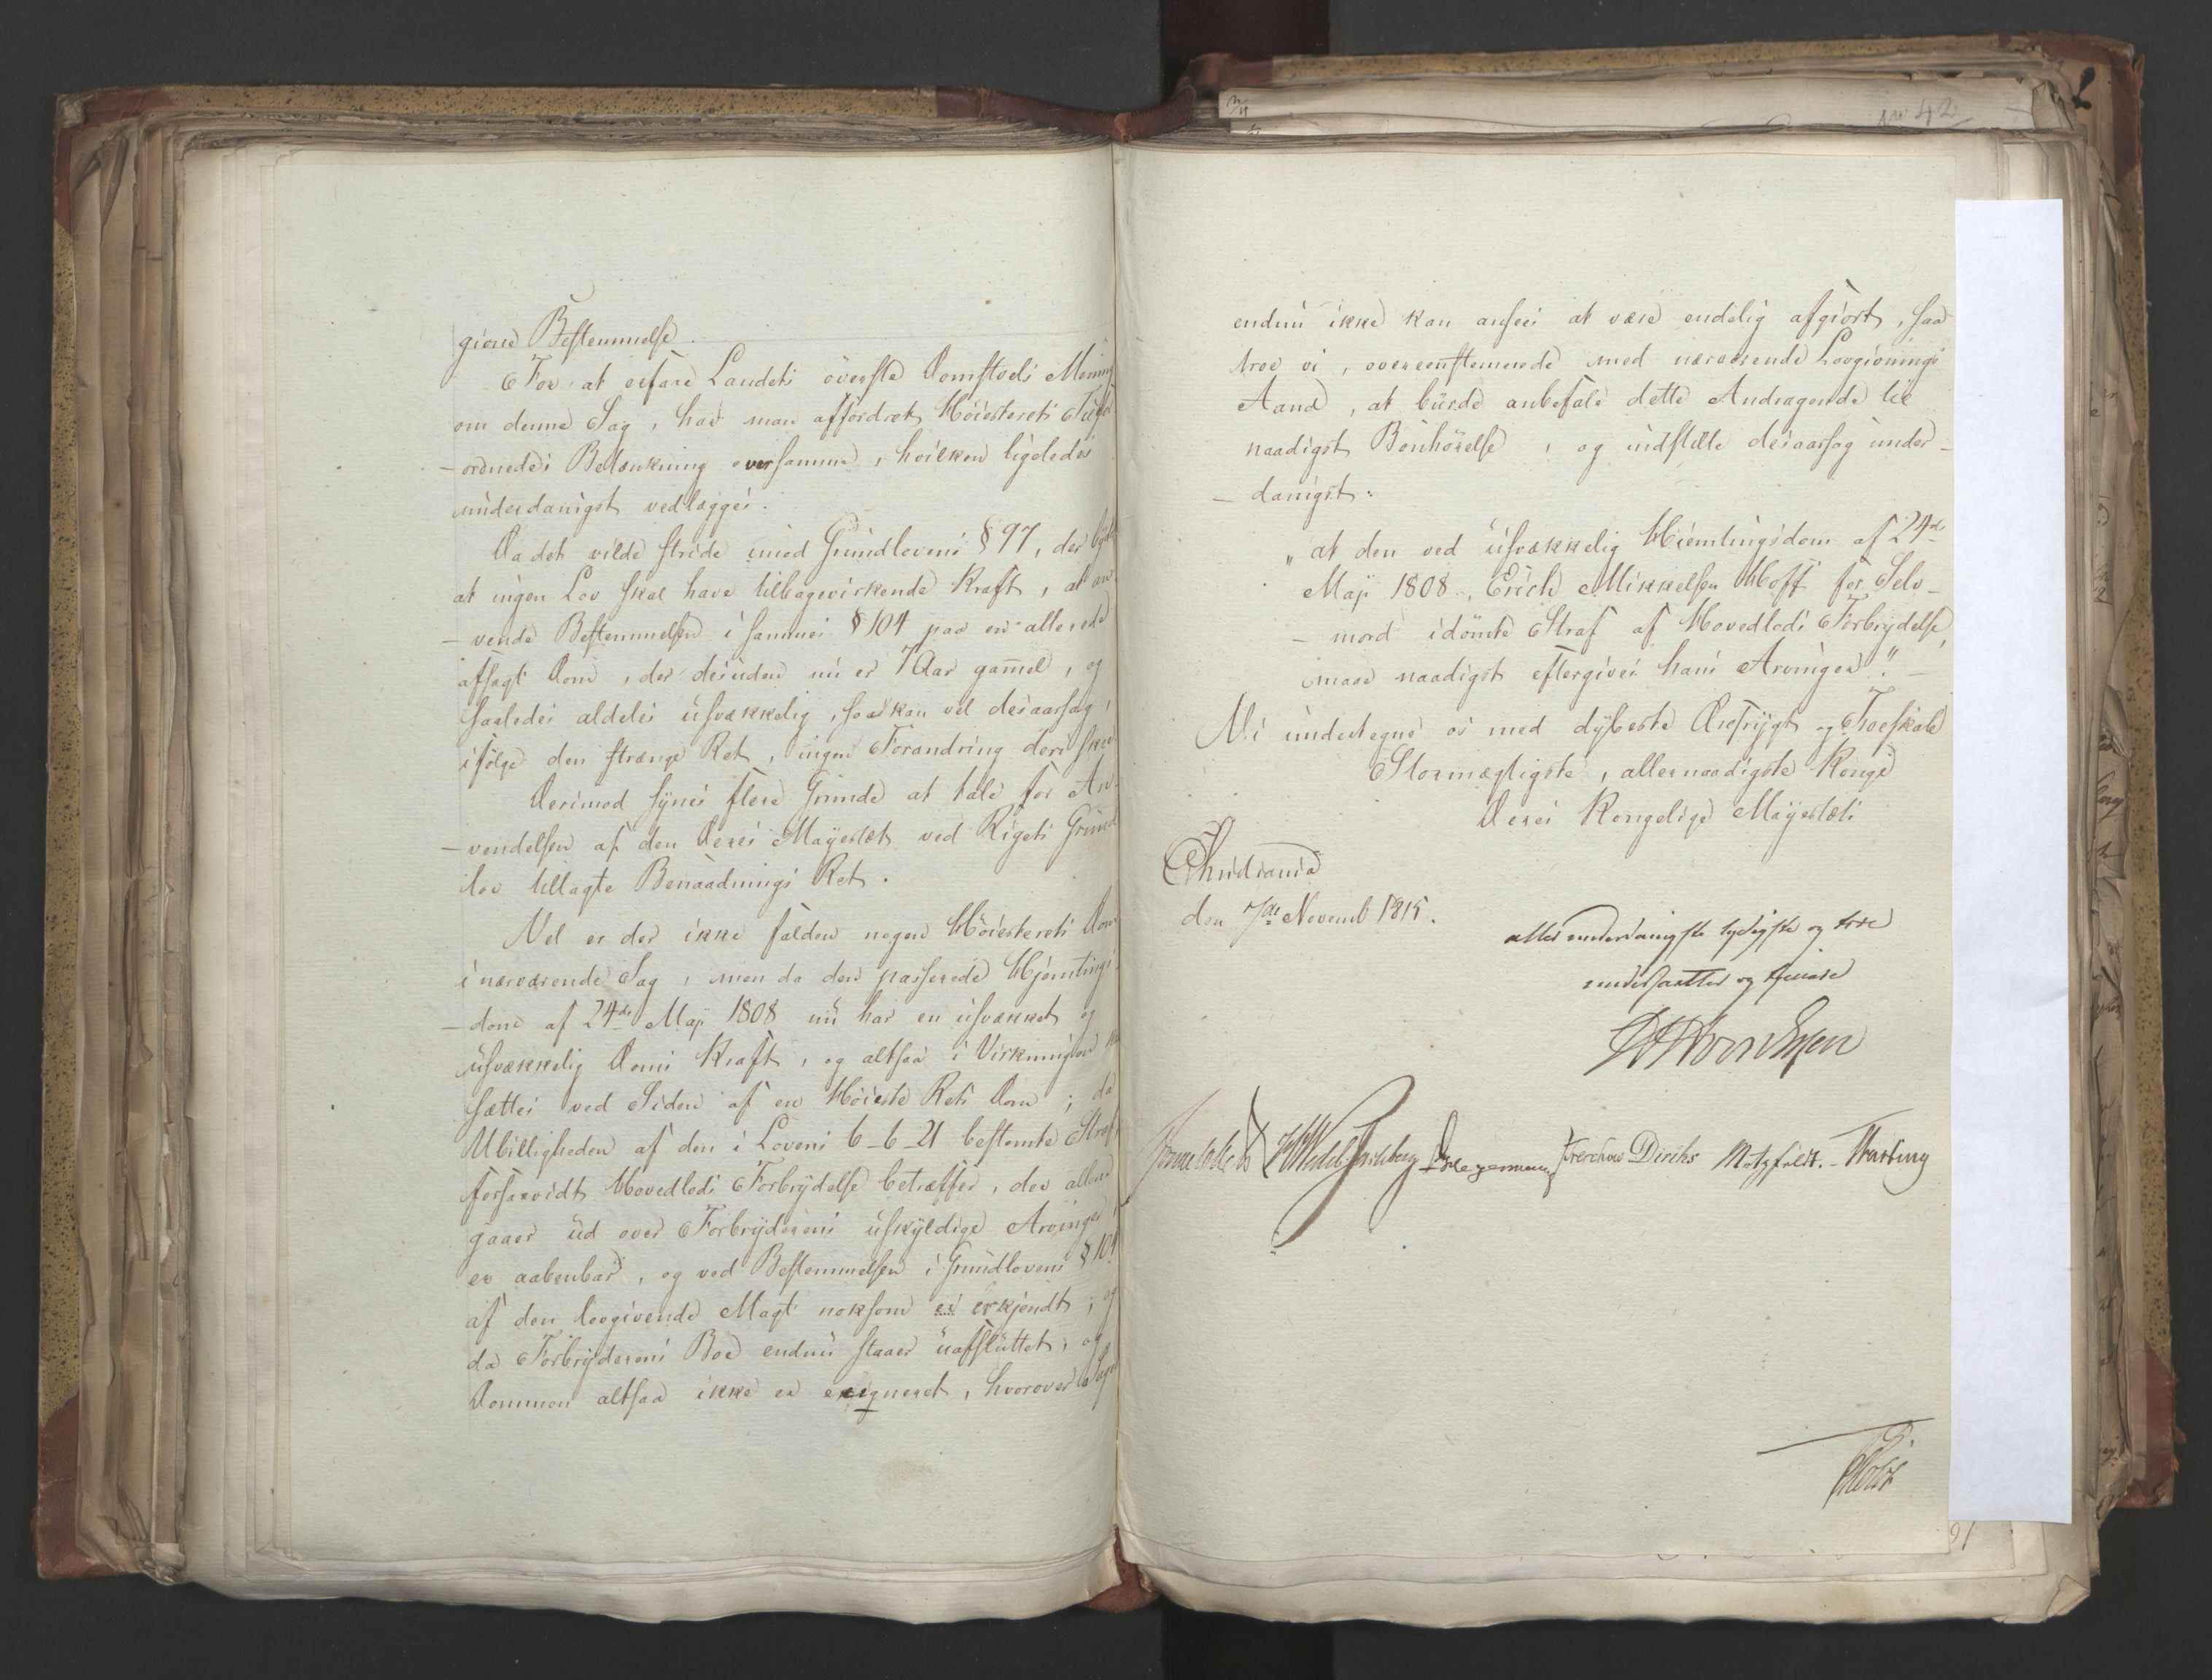 giørre Bestemmelse.
For at erfare Landets øverste Domstols Mening
om denne Sag, har man affordret Høiesterets Tilfor
-ordnedes Betænkning over samme, hvilken ligeledes
underdanigst vedlægges.
Da det vilde stride imod Grundlovens § 97, der byder
at ingen Lov skal have tilbagevirkende Kraft, at an-
-vende Bestemmelsen i sammes § 104 paa en allerede
afsagt Dom, der desuden nu er 7 Aar gammel, og
saaledes aldeles usvækkelig, saa kan vel desaarsag,
ifølge den strænge Ret, ingen Forandring deri skee
Derimod synes flere Grunde at tale for An-
-vendelsen af den Deres Mayestæt ved Rigets Grund
lov tillagte Benaadnings Ret.
Vel er der ikke falden nogen Høiesterets Dom
i nærværende Sag, men da den passerede Hjemtings
-dom af 24de Maji 1808 nu har en usvækket og
usvækkelig Doms Kraft, og altsaa i Virkningen
sættes ved Siden af en Høieste Rets Dom; da
Ubilligheden af den i Lovens 6-6-21 bestemte Straf
forsaavidt Hovedlods Forbrydelse betræffer, der allene
gaaer ud over Forbryderens uskyldige Arvinger,
er aabenbar, og ved Bestemmelsen i Grundlovens § 104
af den lovgivende Magt noksom er erkjendt; og
da Forbryderens Boe endnu staaer uafsluttet, og
Dommen altsaa ikke er exeqveret, hvorover Sagen
No 42
endnu ikke kan ansees at være endelig afgiort, saa
troe vi, overeenstemmende med nærværende Lovgivnings
Aand, at burde anbefale dette Andragende til
naadigst Bønhørelse, og indstille desaarsag under-
-danigst:
"at den ved usvækkelig Hiemtingsdom af 24de
Maji 1808, Erich Mikkelsen Hoff for Selv-
-mord idømte Straf af Hovedlods Forbrydelse,
maae naadigst eftergives hans Arvinger."
Vi undertegne os med dybeste Ærefrygt og Troeskab
Stormægtigste, allernaadigste Konge
Deres Kongelige Mayestæts
Christiania
den 7de Novemb 1815.
allerunderdanigste lydigste og troe
undersaatter og tienere
Sommerhielm HWedel Jarlsberg Hegermann Krerchow Diriks Motzfeldt. - Thrane
Holst